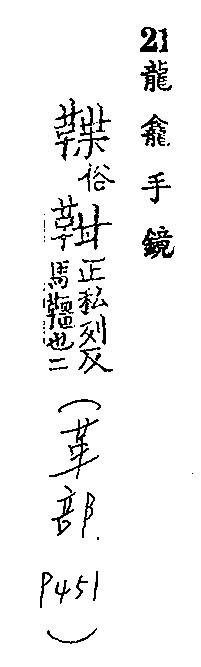 21 龍龕手鏡
鞢俗靾正私列反馬韁也二（革部. P451）